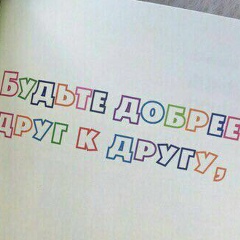 Будьте добрее
друг к другу,